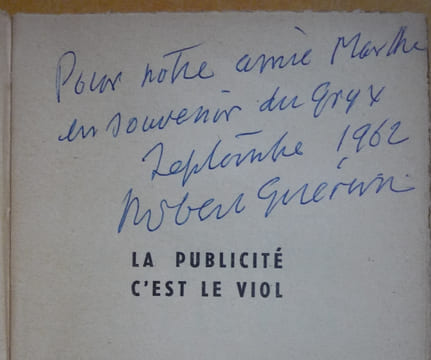 Pour notre amie Marthe
en souvenir du Gryx
Septembre 1962
Robert Guérin
LA PUBLICITÉ
C'EST LE VIOL